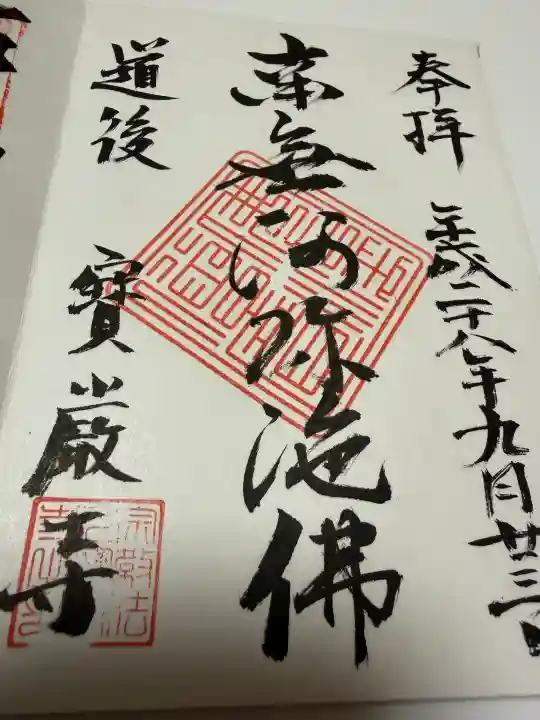 奉拝 平成二十八年九月廿三日
南無阿弥陀佛
道後 寶厳寺